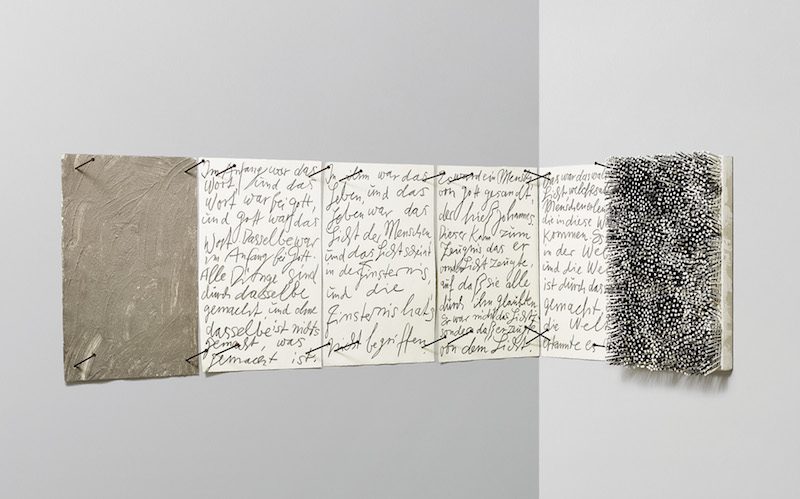 Im Anfang war das
Wort, und das
Wort war bei Gott,
und Gott war das
Wort Dasselbe war
im Anfang bei Gott.
Alle Dinge sind
durch dasselbe
gemacht und ohne
dasselbe ist nichts
gemacht, was
gemacht ist.
In dem war das
Leben, und das
Leben war das
Licht der Menschen
und das Licht scheint
in der Finsternis
und die
Finsternis hat's
nicht begriffen
Es ward ein Mensch
von Gott gesandt
der hieß Johannes
Dieser kam zum
Zeugnis das er
vom Licht zeugte,
auf daß sie alle
durch ihn glaubten
Er war nicht das Licht
sondern daß er zeugte
von dem Licht.
das war das
Licht welch
Menschen
die in diese W
kommen E
in der Wel
und die We
ist durch das
gemacht,
die Welt
kannte es